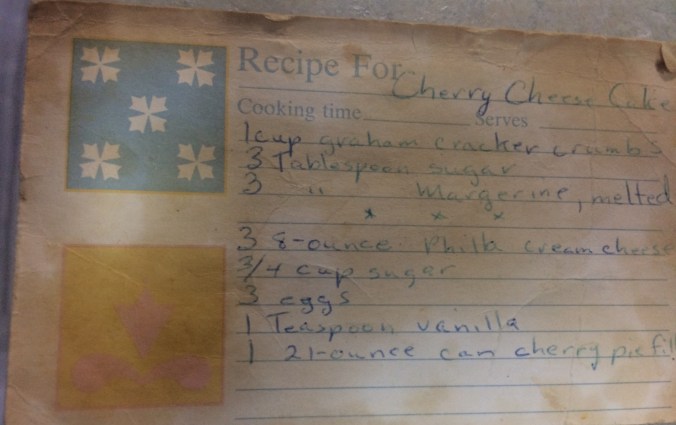 Recipe For Cherry Cheese Cake
Cooking time Serves
1 cup graham cracker crumbs
3 Tablespoon sugar
3 " Margerine, melted
* * *
3 8-ounce Phila cream cheese
3/4 cup sugar
3 eggs
1 Teaspoon vanilla
1 21-ounce can cherry pie fil